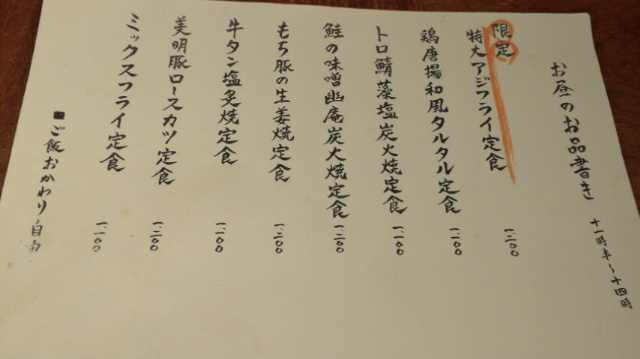 お昼のお品書き
十一時半～十四時
限定
特大アジフライ定食 一、二〇〇
鶏唐揚和風タルタル定食 一、一〇〇
トロ鯖藻塩炭火焼定食 一、一〇〇
鮭の味噌幽庵炭火焼定食 一、二〇〇
もち豚の生姜焼定食 一、二〇〇
牛タン塩炙焼定食 一、一〇〇
美明豚ロースカツ定食 一、二〇〇
ミックスフライ定食 一、一〇〇
■ご飯おかわり自由